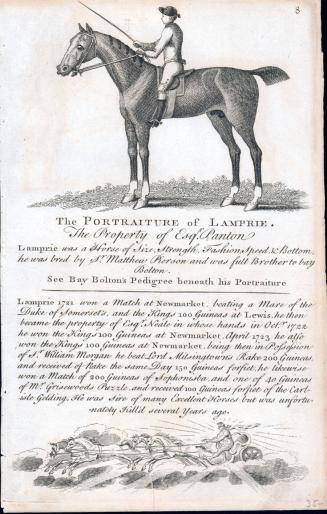 8
The PORTRAITURE of LAMPRIE.
The Property of Esqr. Panton
Lamprie was a Horse of Size, Strength, Fashion, Speed, & Bottom,
he was bred by Sr. Matthew Pierson and was full Brother to bay
Bolton.
See Bay Bolton's Pedigree beneath his Portraiture
Lamprie 1721 won a Match at Newmarket, beating a Mare of the
Duke of Somersets, and the Kings 100 Guineas at Lewis, he then
became the property of Esqr. Neale in whose hands in Octr. 1722
he won the Kings 100 Guineas at Newmarket, April 1723 he also
won the Kings 100 Guineas at Newmarket, being then in Possession
of Sr. William Morgan he beat Lord Milsingtowns Rake 200 Guineas,
and received of Rake the same Day 150 Guineas forfiet, he likewise
won a Match of 200 Guineas of Sophonisba, and one of 40 Guineas
of Mr. Grisewoods Puzzle, and received 100 Guineas forfiet of the Carl-
isle Gelding, He was Sire of many Excellent Horses but was unfortu-
nately Kill'd several Years ago.